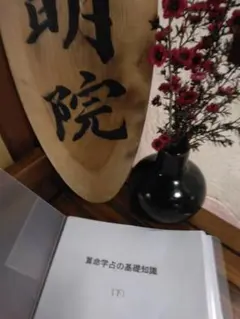 明
院
算命学占の基礎知識